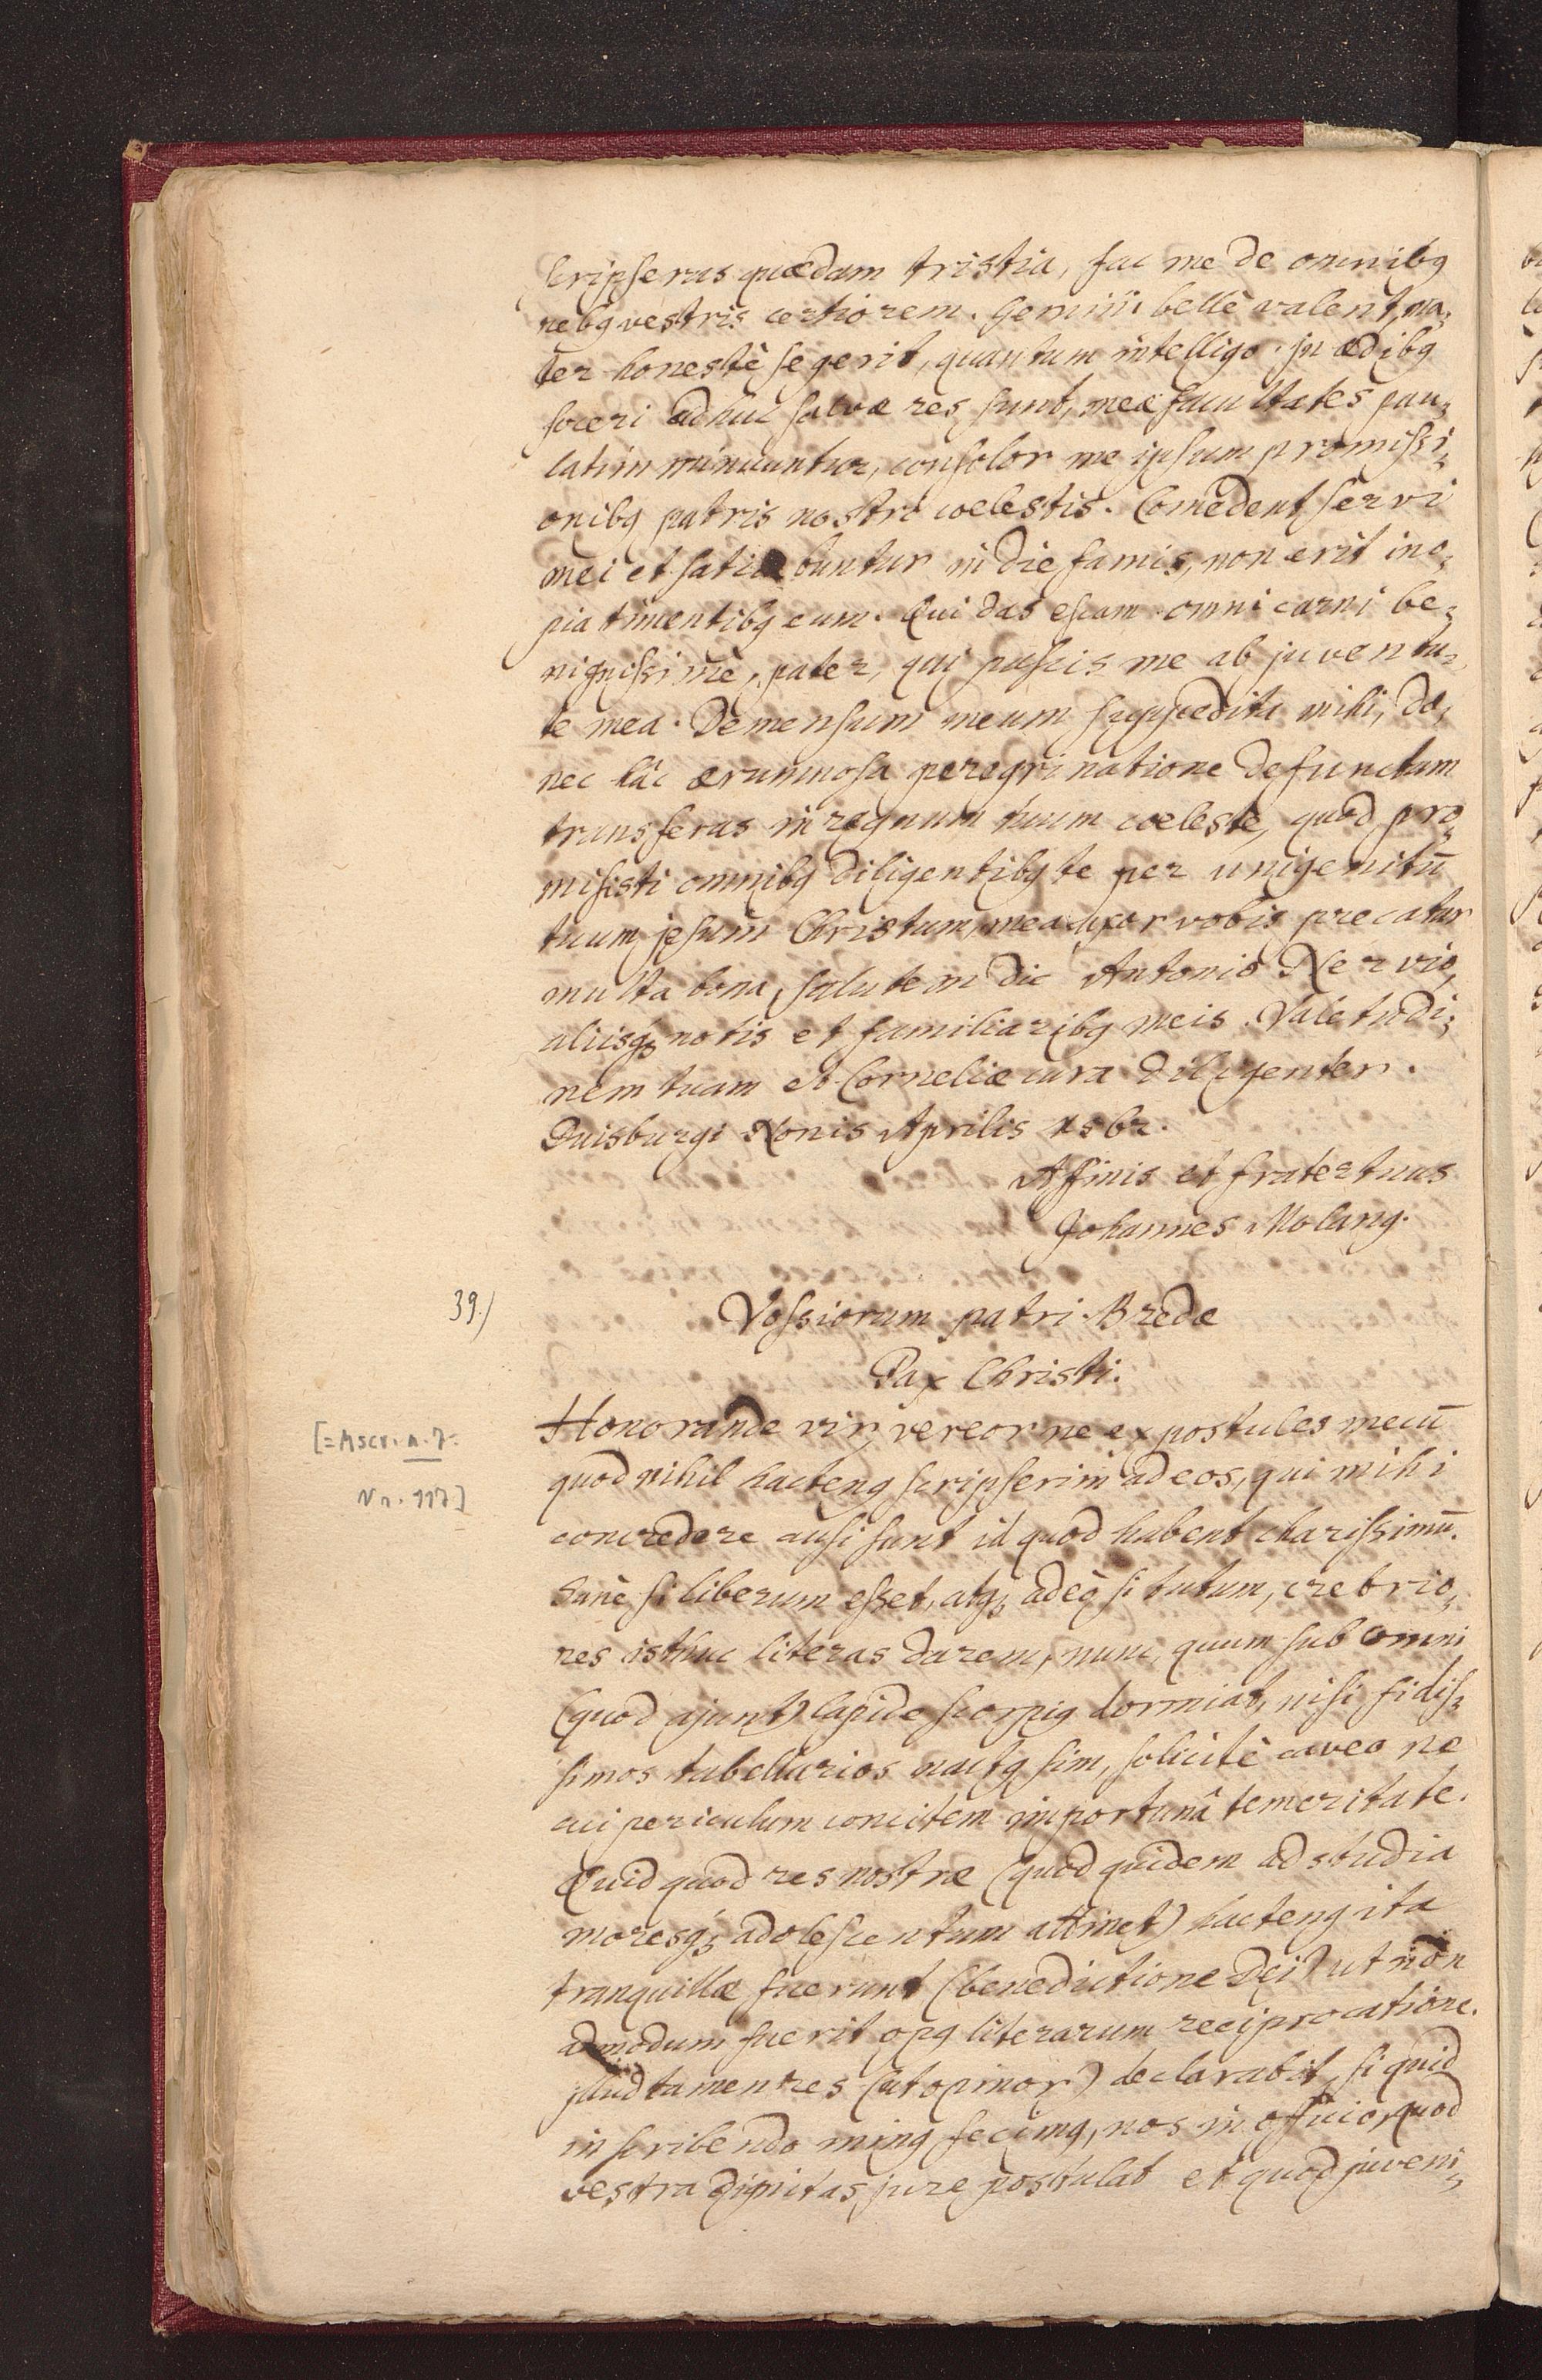 scripseras quædam tristia, fac me de omnibꝯ
rebꝯ vestris certiorem. Gemini bellè valent, ma-
ter honestè se gerit, quantum intelligo. In ædibꝯ
soceri adhuc salvæ res sunt, meæ facultates pau-
latim minuuntur, consolor me ipsum promissi-
onibꝯ patris nostri coelestis. Comedent servi
mei et satiabuntur in die famis, non erit ino-
pia timentibꝯ eum. Qui das escam omni carni be-
nignissime pater, qui pascis me ab juventu-
te mea. Demensum meum suppedita mihi, do-
nec hâc ærumnosa peregrinatione defunctum
transferas in regnum tuum coeleste, quod pro-
misisti omnibꝯ diligentibꝯ te per unigenitū
tuum jesum Christum, mea uxor vobis precatur
multa bona, salutem dic Antonio Nervio,
aliisqꝫ notis et familiaribꝯ meis. Valetudi-
nem tuam et Corneliæ cura diligenter.
Duisburgi Nonis Aprilis 1562.
Affinis et frater tuus
Johannes Molanꝯ.
39.)
Vossiorum patri Bredæ
Pax Christi.
Honorande vir, vereor ne expostules mecū
[= Ascr. n. 7.
quod nihil hactenꝯ scripserim ad eos, qui mihi
Nr. 117]
concredere ausi sunt id quod habent charissimū.
Sanè si liberum esset, atqꝫ adeò si tutum, crebrio-
res isthuc literas darem, nunc, quum sub omni
(quod ajunt) lapide scorpiꝯ dormiat, nisi fidis-
simos tabellarios nactꝯ sim, solicitè caveo ne
cui periculum concitem importunâ temeritate.
Quid quod res nostræ (quod quidem ad studia
moresqꝫ adolescentum attinet) hactenꝯ ita
tranquillæ fuerunt (benedictione Dei) ut non
admodum fuerit opꝯ literarum reciprocatione.
Illud tamen res (ut opinor) declarabit, si quid
in scribendo minꝯ fecimꝯ, nos in officio, quod
vestra dignitas jure postulat et quod juveni-